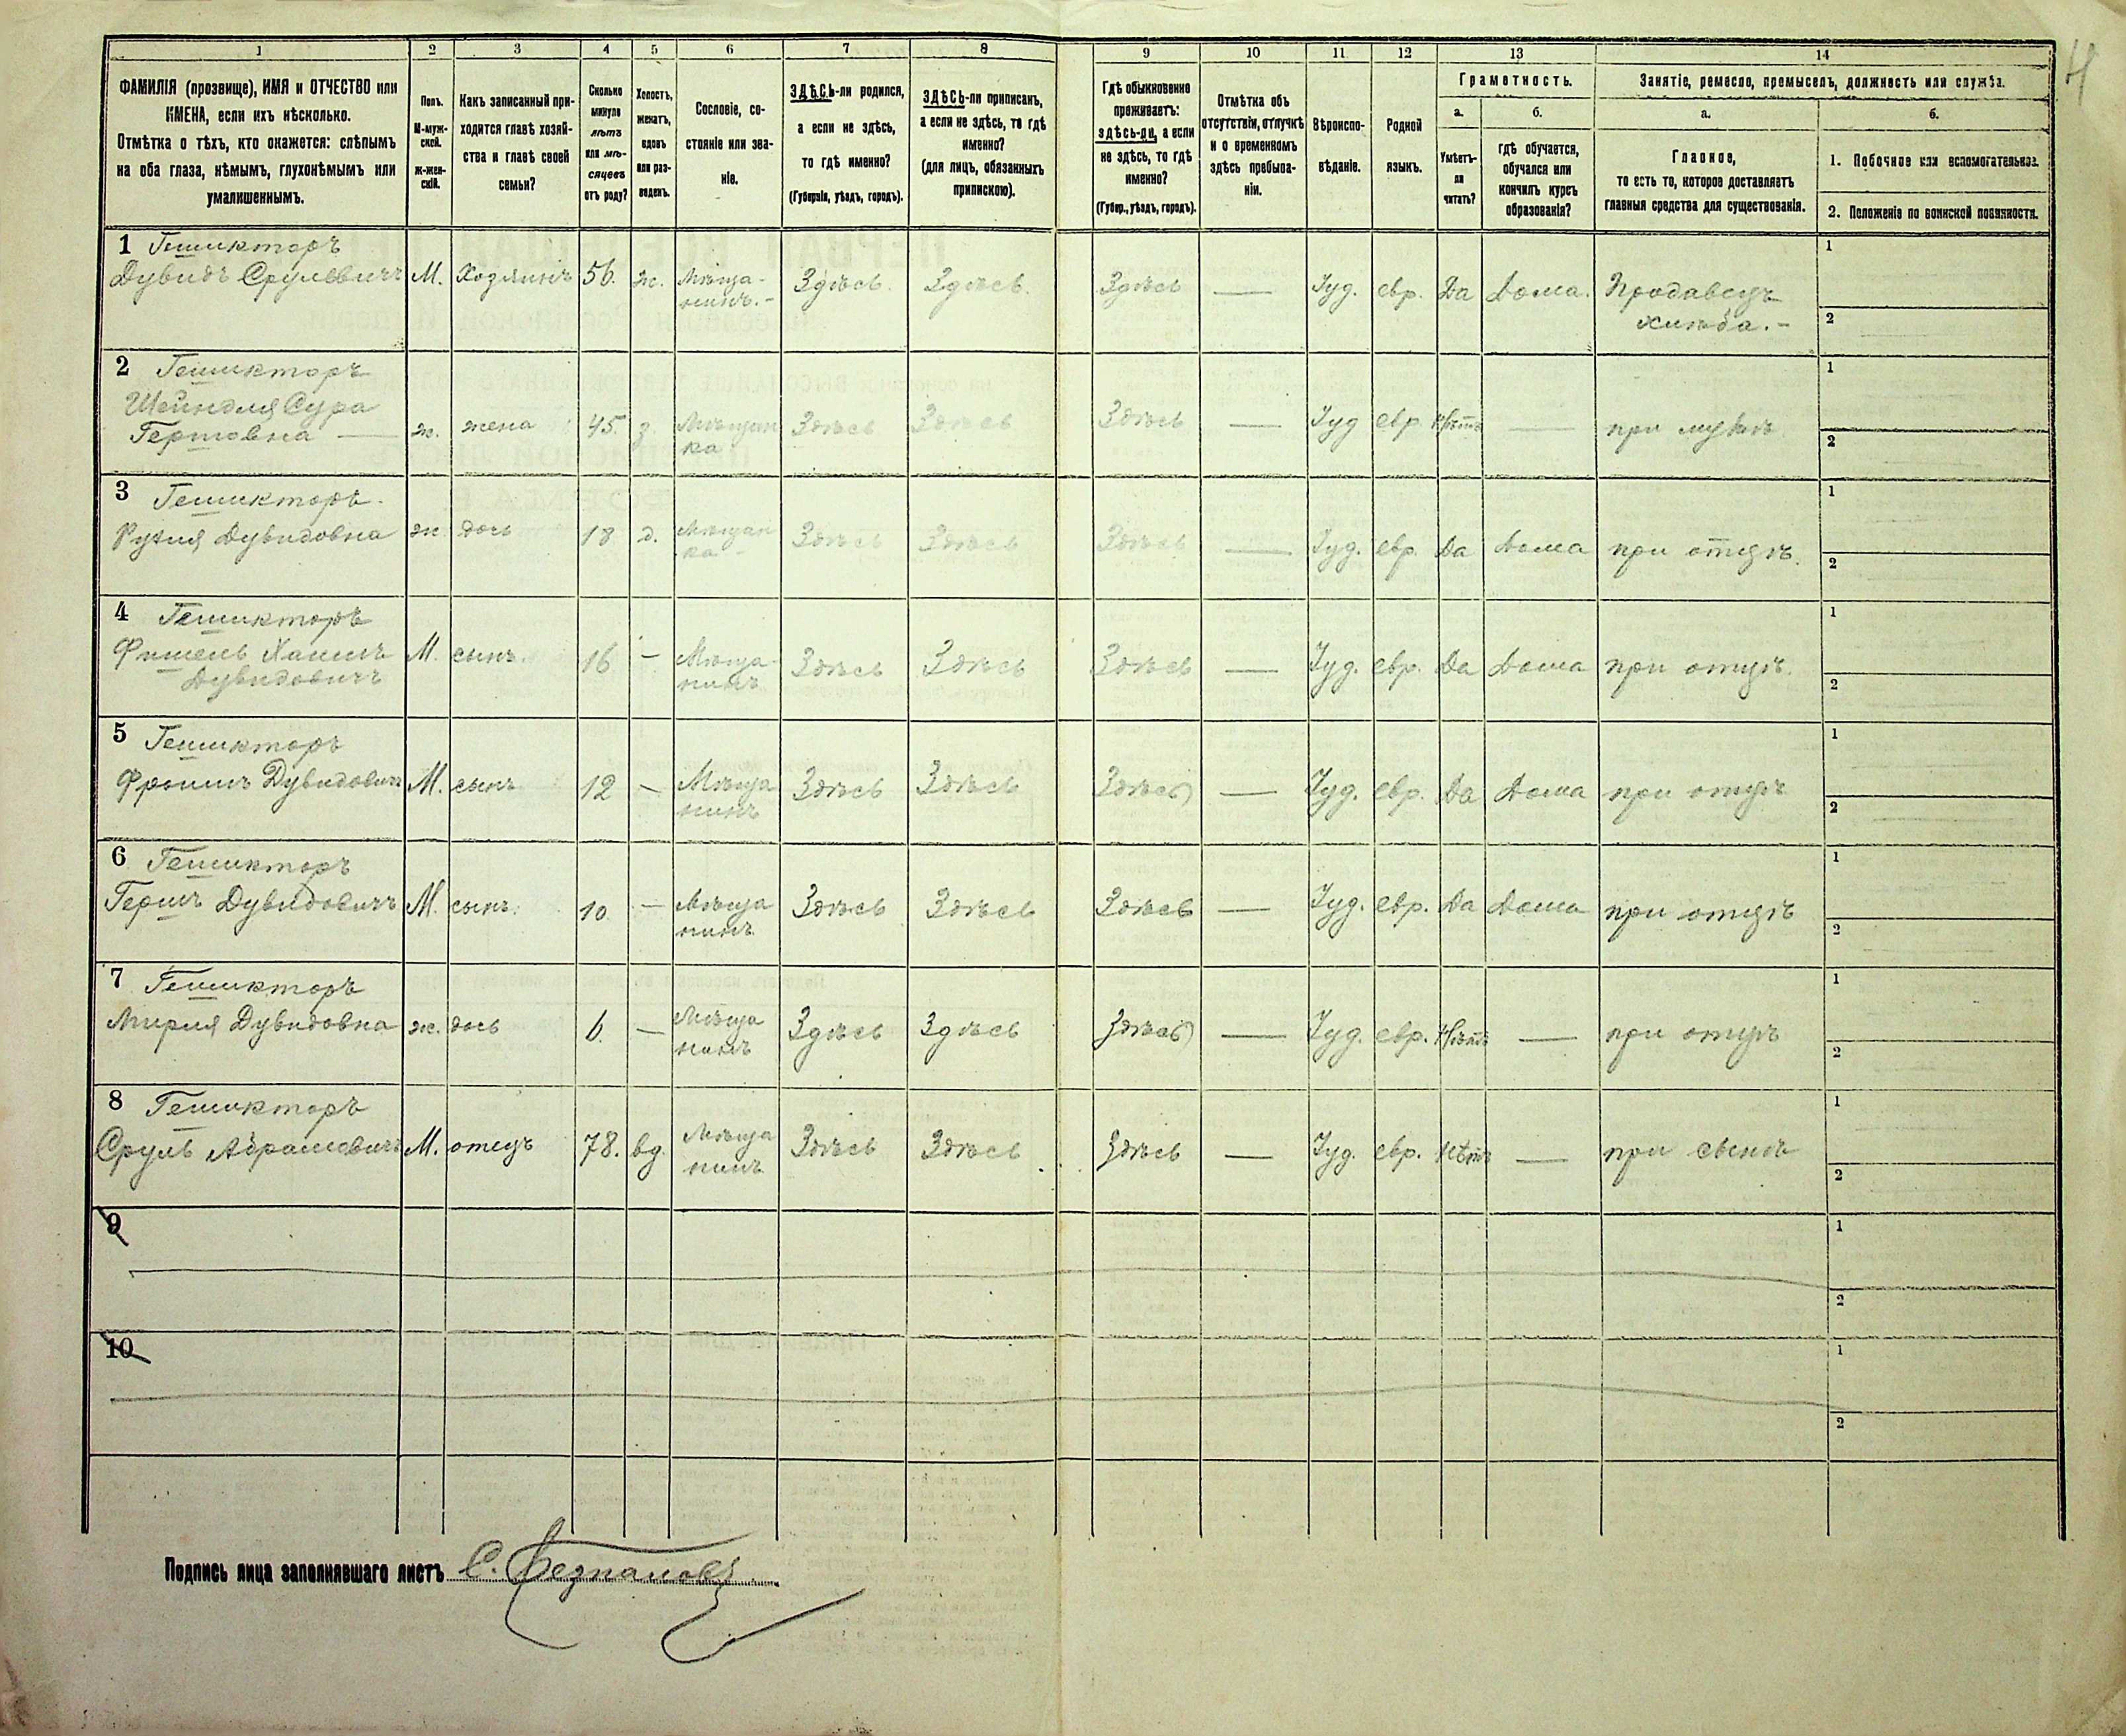 1 2 3 4 5 6 7 8 9 10 11 12 13 14
ФАМИЛІЯ (прозвище), ИМЯ и ОТЧЕСТВО или
ИМЕНА, если ихъ нѣсколько.
Отмѣтка о тѣхъ, кто окажется: слѣпымъ
на оба глаза, нѣмымъ, глухонѣмымъ или
умалишеннымъ.
Полъ.
М-муж-
ской.
Ж-жен-
скій.
Какъ записанный при-
ходится главѣ хозяй-
ства и главѣ своей
семьи?
Сколько
минуло
лѣтъ
или мѣ-
сяцевъ
отъ роду?
Холостъ,
женатъ,
вдовъ
или раз-
веденъ.
Сословіе, со-
стояніе или зва-
ніе.
ЗДѢСЬ-ли родился,
а если не здѣсь,
то гдѣ именно?
(Губернія, уѣздъ, городъ).
ЗДѢСЬ-ли приписанъ,
а если не здѣсь, то гдѣ
именно?
(для лицъ, обязанныхъ
припискою).
Гдѣ обыкновенно
проживаетъ:
здѣсь-ли, а если
не здѣсь, то гдѣ
именно?
(Губер., уѣздъ, городъ).
Отмѣтка объ
отсутствіи, отлучкѣ
и о временномъ
здѣсь пребыва-
ніи.
Вѣроиспо-
вѣданіе.
Родной
языкъ.
Грамотность.
а.
Умѣетъ-
ли
читать?
б.
гдѣ обучается,
обучался или
кончилъ курсъ
образованія?
Занятіе, ремесло, промыселъ, должность или служба.
а.
Главное,
то есть то, которое доставляетъ
главныя средства для существованія.
б.
1. Побочное или вспомогательное.
2. Положеніе по воинской повинности.
4
1 Гешикторъ
Дувидъ Срулевичъ М. Хозяинъ 56. ж. Мѣща-
нинъ.- Здѣсь. Здѣсь. Здѣсь — Іуд. евр. Да Дома. Продавецъ
хлѣба.-
1
2
2 Гешикторъ
Шейндля Сура
Гершовна — ж. жена 45. з. Мѣщан
ка Здѣсь Здѣсь Здѣсь — Іуд евр. Нѣтъ — при мужѣ
1
2
3 Гешикторъ.
Рухля Дувидовна ж дочь 18 д. Мѣщан
ка - Здѣсь Здѣсь Здѣсь — Іуд. евр. Да Дома при отцѣ.
1
2
4 Гешикторъ
Фишель Хаимъ
Дувидовичъ М. сынъ. 16 - Мѣща-
нинъ Здѣсь Здѣсь Здѣсь — Іуд. евр. Да Дома при отцѣ.
1
2
5 Гешикторъ
Фроимъ Дувидовичъ М. сынъ 12 - Мѣща
нинъ Здѣсь Здѣсь Здѣсь — Іуд. евр. Да Дома при отцѣ
1
2
6 Гешикторъ
Гершъ Дувидовичъ М. сынъ. 10 - Мѣща
нинъ Здѣсь Здѣсь Здѣсь — Іуд. евр. Да Дома при отцѣ
1
2
7 Гешикторъ
Мирля Дувидовна ж. дочь 6. - Мѣща
нинъ Здѣсь Здѣсь Здѣсь — Іуд. евр. Нѣтъ — при отцѣ
1
2
8 Гешикторъ
Сруль Абрамовичъ М. отецъ 78. вд. Мѣща
нинъ Здѣсь Здѣсь Здѣсь — Іуд. евр. Нѣтъ — при сынѣ
1
2
9
1
2
10
1
2
Подпись лица заполнявшаго листъ С.